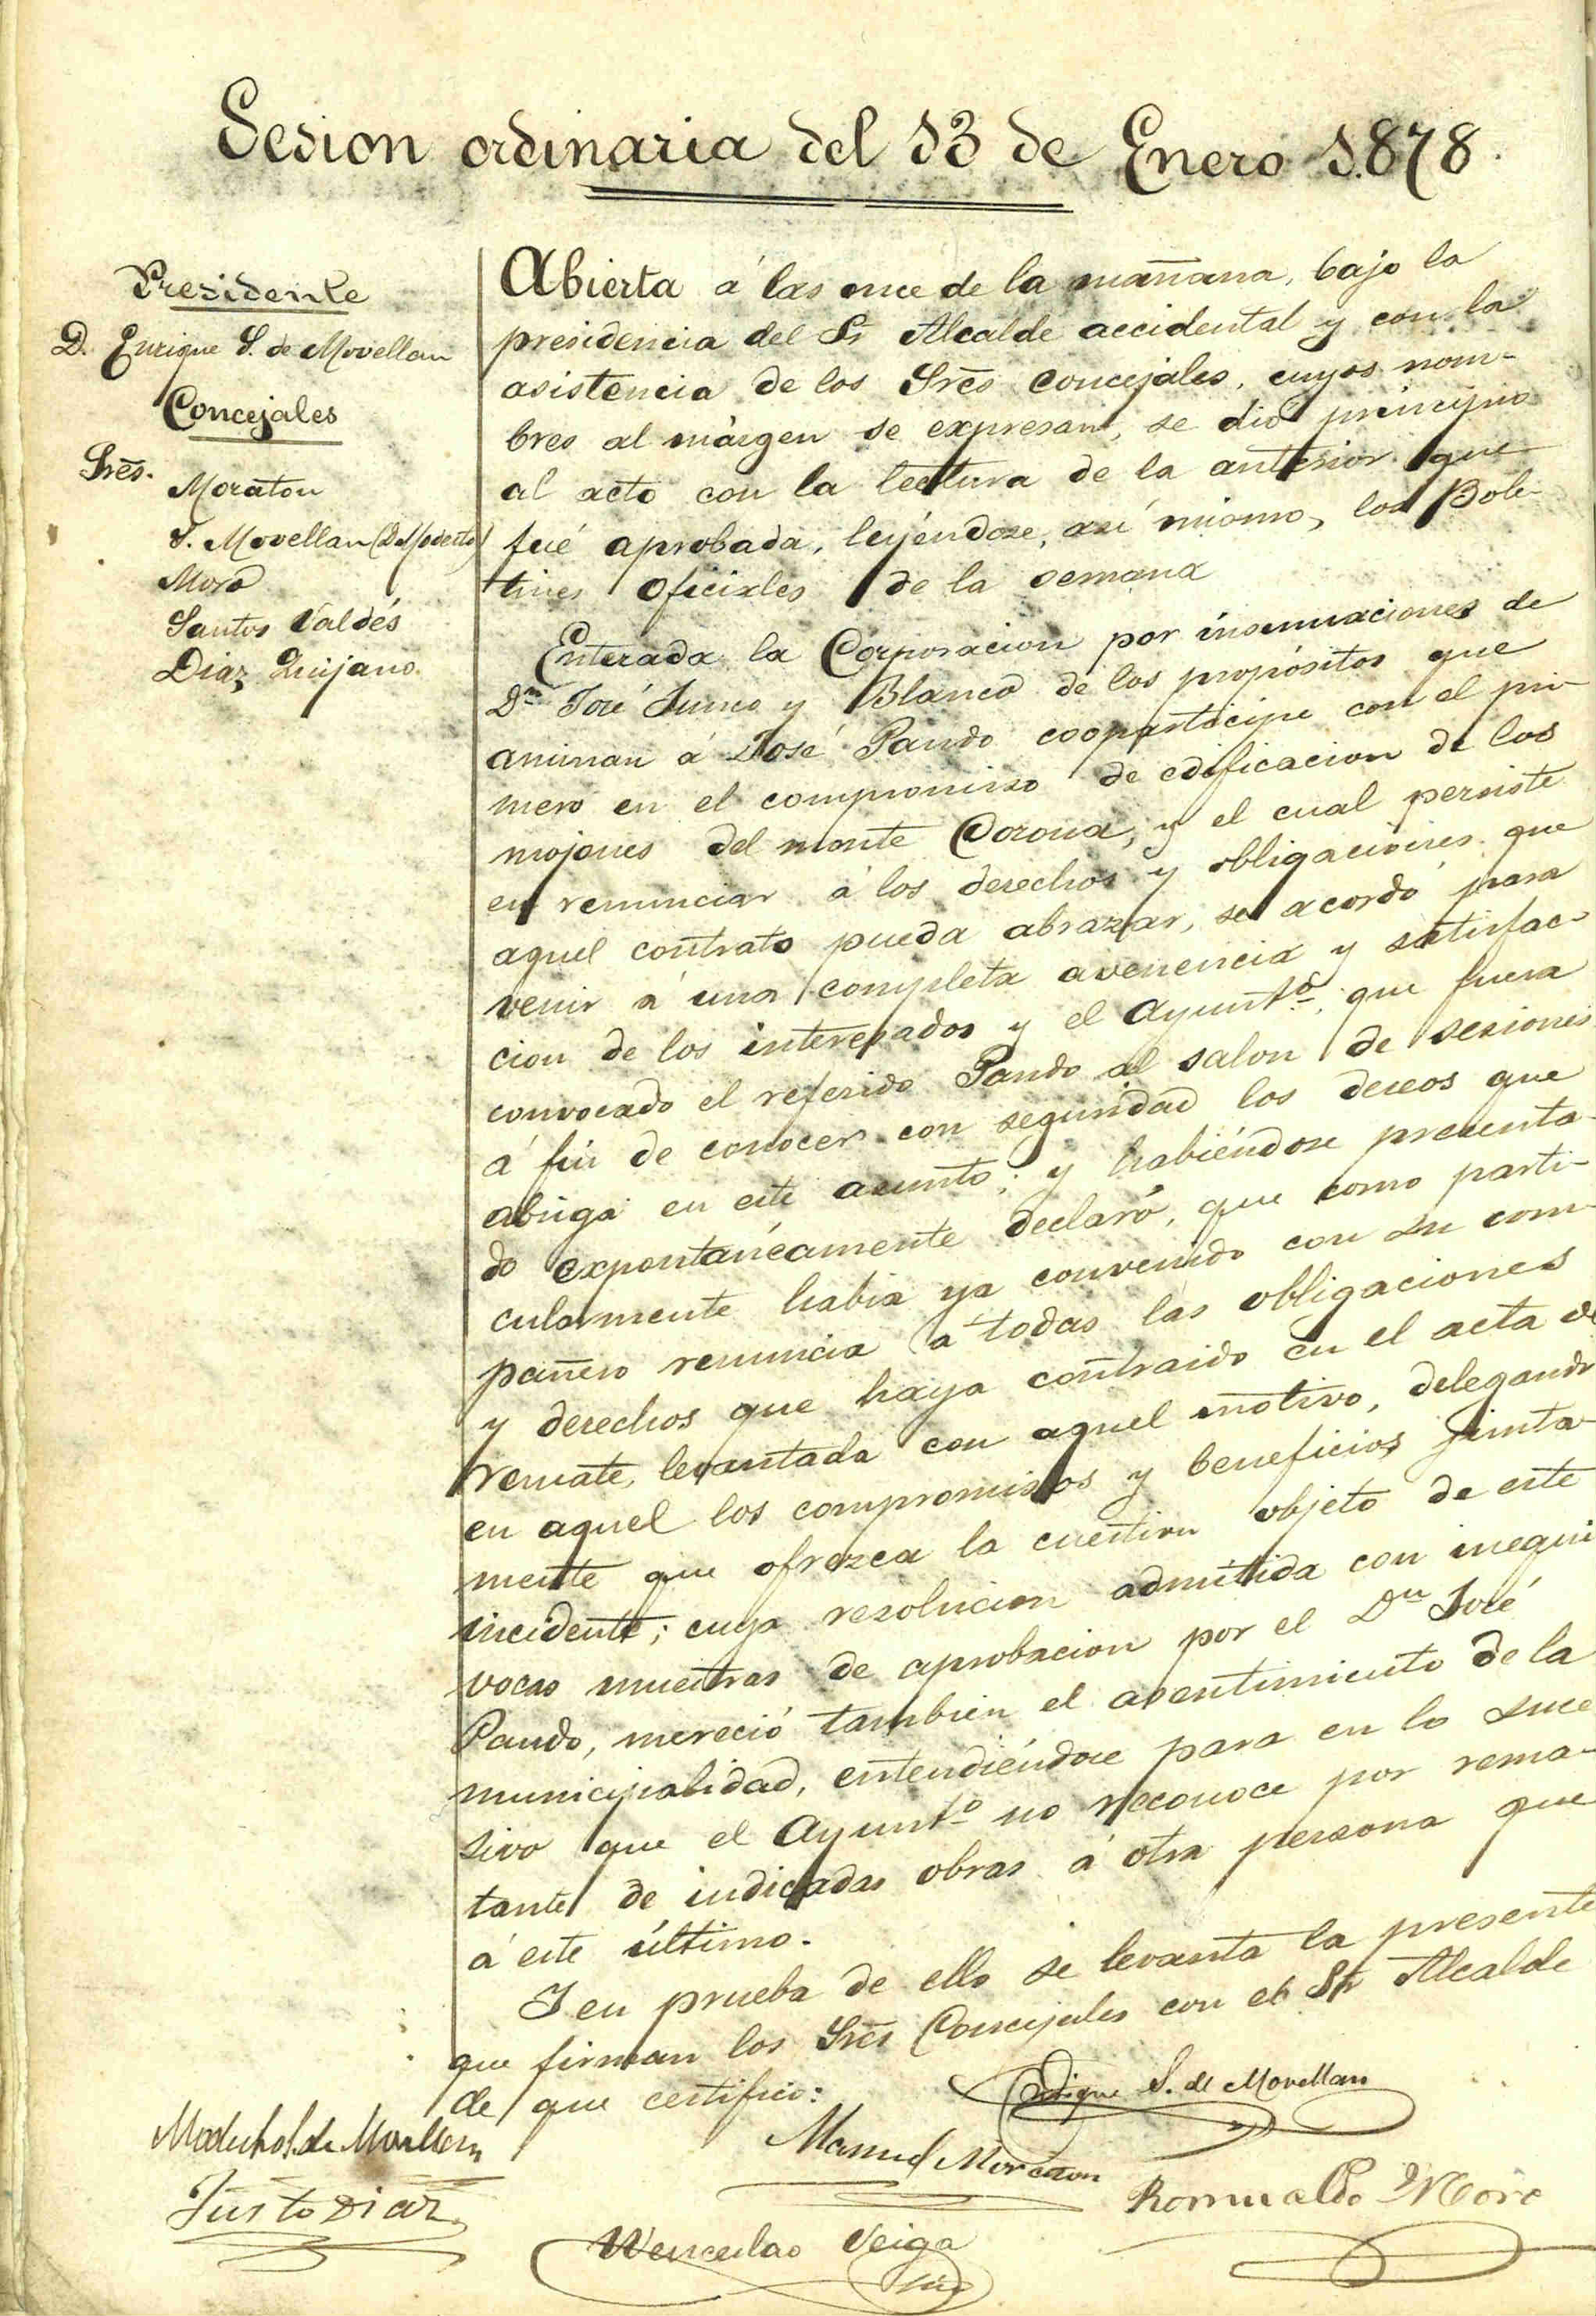 Sesion ordinaria del 13 de Enero 1.878.
Presidente
D. Enrique S. de Movellan
Concejales
Sres.
Moraton
S. Movellan (D Modesto)
Moro
Santos Valdés
Diaz Quijano.
Abierta á las once de la mañana, bajo la
presidencia del Sr Alcalde accidental y con la
asistencia de los Sres Concejales, cuyos nom-
bres al márgen se expresan, se dió principio
al acto con la lectura de la anterior que
fué aprobada, leyéndose, así mismo, los Bole-
tines oficiales de la semana
Enterada la Corporacion por insinuaciones de
Dn José Junco y Blanco de los propósitos que
animan á José Pando coopartícipe con el pri-
mero en el compromiso de edificacion de los
mojones del monte Corona, y el cual persiste
en renunciar á los derechos y obligaciones que
aquel contrato pueda abrazar, se acordó para
venir á una completa avenencia y satisfac-
cion de los interesados y el Ayunto. que fuera
convocado el referido Pando al salon de sesiones
á fin de conocer con seguridad los deseos que
abriga en este asunto; y habiéndose presenta-
do expontáneamente declaró, que como parti-
cularmente habia ya convenido con su com-
pañero renuncia á todas las obligaciones
y derechos que haya contraido en el acta de
remate, levantada con aquel motivo, delegando
en aquel los compromisos y beneficios junta-
mente que ofrezca la cuestion objeto de este
incidente; cuya resolucion admitida con inequi
vocas muestras de aprobacion por el Dn José
Pando, mereció tambien el asentimiento de la
municipalidad, entendiéndose para en lo suce
sivo que el Ayunto no reconoce por rema-
tante de indicadas obras á otra persona que
á este último.
Y en prueba de ello se levanta la presente
que firman los Sres Concejales con el Sr Alcalde
de que certifico:
Enrique S. de Movellan
Modesto S. de Movellan
Manuel Moraton
Justo Diaz
Romualdo Moro
Wenceslao Veiga
Srio